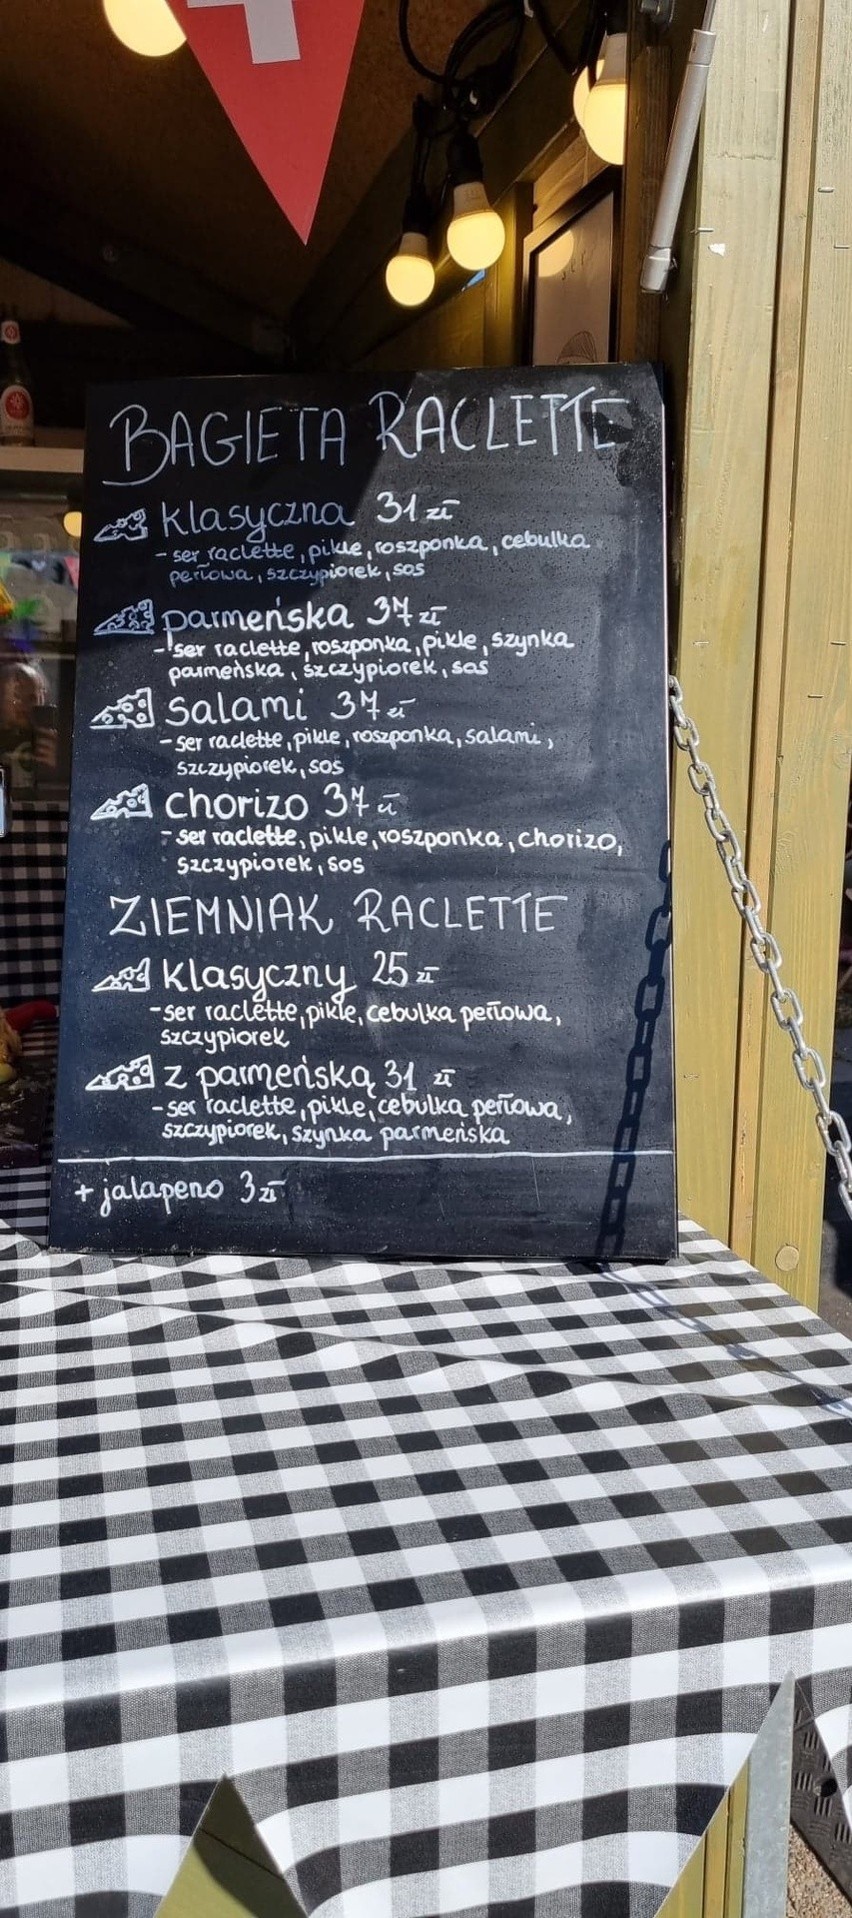 BAGIETA RACLETTE
klasyczna 31 zł
- ser raclette, pikle, roszponka, cebulka
perłowa, szczypiorek, sos
parmeńska 37 zł
- ser raclette, roszponka, pikle, szynka
parmeńska, szczypiorek, sos
salami 37 zł
- ser raclette, pikle, roszponka, salami,
szczypiorek, sos
chorizo 37 zł
- ser raclette, pikle, roszponka, chorizo,
szczypiorek, sos
ZIEMNIAK RACLETTE
klasyczny 25 zł
- ser raclette, pikle, cebulka perłowa,
szczypiorek
z parmeńską 31 zł
- ser raclette, pikle, cebulka perłowa,
szczypiorek, szynka parmeńska
+ jalapeno 3 zł